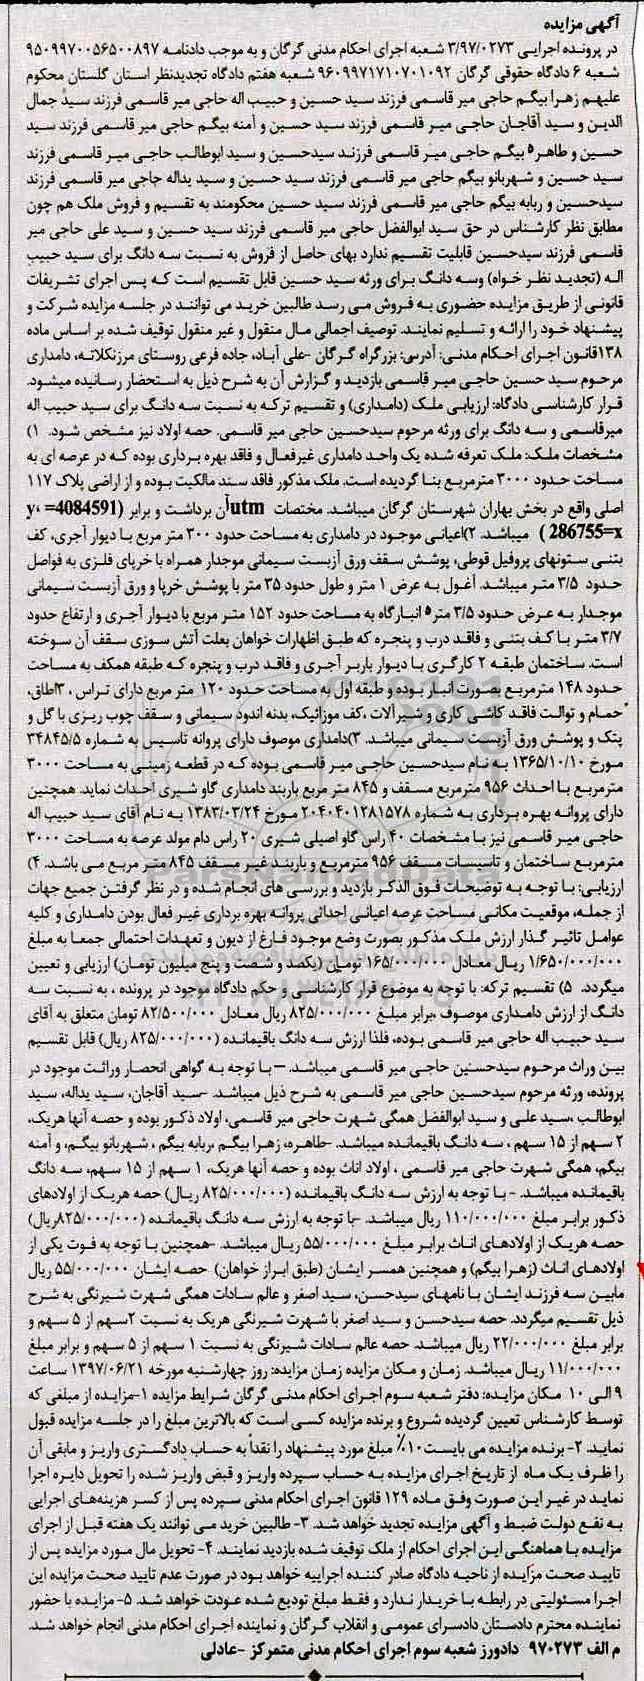 آگهی مزایده
در پرونده اجرایی ۳/۹۷/۰۲۷۳ شعبه اجرای احکام مدنی گرگان و به موجب دادنامه ۹۵۰۹۹۷۰۰۵۶۵۰۰۸۹۷
شعبه ۶ دادگاه حقوقی گرگان ۹۶۰۹۹۷۱۷۱۰۷۰۱۰۹۲ شعبه هفتم دادگاه تجدیدنظر استان گلستان محکوم
علیهم زهرا بیگم حاجی میر قاسمی فرزند سید حسین و حبیب اله حاجی میر قاسمی فرزند سید جمال
الدین و سید آقاجان حاجی میر قاسمی فرزند سید حسین و آمنه بیگم حاجی میر قاسمی فرزند سید
حسین و طاهره بیگم حاجی میر قاسمی فرزند سیدحسین و سید ابوطالب حاجی میر قاسمی فرزند
سید حسین و شهربانو بیگم حاجی میر قاسمی فرزند سید حسین و سید یداله حاجی میر قاسمی فرزند
سیدحسین و ربابه بیگم حاجی میر قاسمی فرزند سید حسین محکومند به تقسیم و فروش ملک هم چون
مطابق نظر کارشناس در حق سید ابوالفضل حاجی میر قاسمی فرزند سید حسین و سید علی حاجی میر
قاسمی فرزند سیدحسین قابلیت تقسیم ندارد بهای حاصل از فروش به نسبت سه دانگ برای سید حبیب
اله (تجدید نظر خواه) وسه دانگ برای ورثه سید حسین قابل تقسیم است که پس اجرای تشریفات
قانونی از طریق مزایده حضوری به فروش می رسد طالبین خرید می توانند در جلسه مزایده شرکت و
پیشنهاد خود را ارائه و تسلیم نمایند. توصیف اجمالی مال منقول و غیر منقول توقیف شده بر اساس ماده
۱۳۸قانون اجرای احکام مدنی: آدرس: بزرگراه گرگان -علی آباد، جاده فرعی روستای مرزنکلاته، دامداری
مرحوم سید حسین حاجی میر قاسمی بازدید و گزارش آن به شرح ذیل به استحضار رسانیده میشود.
قرار کارشناسی دادگاه: ارزیابی ملک (دامداری) و تقسیم ترکه به نسبت سه دانگ برای سید حبیب اله
میرقاسمی و سه دانگ برای ورثه مرحوم سیدحسین حاجی میر قاسمی. حصه اولاد نیز مشخص شود. ۱)
مشخصات ملک: ملک تعرفه شده یک واحد دامداری غیرفعال و فاقد بهره برداری بوده که در عرصه ای به
مساحت حدود ۳۰۰۰ مترمربع بنا گردیده است. ملک مذکور فاقد سند مالکیت بوده و از اراضی پلاک ۱۱۷
اصلی واقع در بخش بهاران شهرستان گرگان میباشد. مختصات utm آن برداشت و برابر (y، =4084591
286755=x ) میباشد. ۲)اعیانی موجود در دامداری به مساحت حدود ۳۰۰ متر مربع با دیوار آجری، کف
بتنی ستونهای پروفیل قوطی، پوشش سقف ورق آزبست سیمانی موجدار همراه با خرپای فلزی به فواصل
حدود ۳/۵ متر میباشد. آغول به عرض ۱ متر و طول حدود ۳۵ متر با پوشش خرپا و ورق آزبست سیمانی
موجدار به عرض حدود ۳/۵ متر ۵ انبارگاه به مساحت حدود ۱۵۲ متر مربع با دیوار آجری و ارتفاع حدود
۳/۷ متر با کف بتنی و فاقد درب و پنجره که طبق اظهارات خواهان بعلت آتش سوزی سقف آن سوخته
است. ساختمان طبقه ۲ کارگری با دیوار باربر آجری و فاقد درب و پنجره که طبقه همکف به مساحت
حدود ۱۴۸ مترمربع بصورت انبار بوده و طبقه اول به مساحت حدود ۱۲۰ متر مربع دارای تراس ، ۳اطاق،
حمام و توالت فاقد کاشی کاری و شیرآلات ،کف موزائیک، بدنه اندود سیمانی و سقف چوب ریزی با گل و
پتک و پوشش ورق آزبست سیمانی میباشد. ۳)دامداری موصوف دارای پروانه تاسیس به شماره ۳۴۸۴۵/۵
مورخ ۱۳۶۵/۱۰/۱۰ به نام سیدحسین حاجی میر قاسمی بوده که در قطعه زمینی به مساحت ۳۰۰۰
مترمربع با احداث ۹۵۶ مترمربع مسقف و ۸۴۵ متر مربع باربند دامداری گاو شیری احداث نماید. همچنین
دارای پروانه بهره برداری به شماره ۲۰۴۰۴۰۱۲۸۱۵۷۸ مورخ ۱۳۸۳/۰۳/۲۴ به نام آقای سید حبیب اله
حاجی میر قاسمی نیز با مشخصات ۴۰ راس گاو اصلی شیری ۲۰ راس دام مولد عرصه به مساحت ۳۰۰۰
مترمربع ساختمان و تاسیسات مسقف ۹۵۶ مترمربع و باربند غیر مسقف ۸۴۵ متر مربع می باشد. ۴)
ارزیابی: با توجه به توضیحات فوق الذکر بازدید و بررسی های انجام شده و در نظر گرفتن جمیع جهات
از جمله، موقعیت مکانی مساحت عرصه اعیانی احداثی پروانه بهره برداری غیر فعال بودن دامداری و کلیه
عوامل تاثیر گذار ارزش ملک مذکور بصورت وضع موجود فارغ از دیون و تعهدات احتمالی جمعا به مبلغ
۱/۶۵۰/۰۰۰/۰۰۰ ریال معادل ۱۶۵/۰۰۰/۰۰۰ تومان (یکصد و شصت و پنج میلیون تومان) ارزیابی و تعیین
میگردد. ۵) تقسیم ترکه: با توجه به موضوع قرار کارشناسی و حکم دادگاه موجود در پرونده ، به نسبت سه
دانگ از ارزش دامداری موصوف ،برابر مبلغ ۸۲۵/۰۰۰/۰۰۰ ریال معادل ۸۲/۵۰۰/۰۰۰ تومان متعلق به آقای
سید حبیب اله حاجی میر قاسمی بوده، فلذا ارزش سه دانگ باقیمانده (۸۲۵/۰۰۰/۰۰۰ ریال) قابل تقسیم
بین وراث مرحوم سیدحسین حاجی میر قاسمی میباشد. – با توجه به گواهی انحصار وراثت موجود در
پرونده، ورثه مرحوم سیدحسین حاجی میر قاسمی به شرح ذیل میباشد. -سید آقاجان، سید یداله، سید
ابوطالب ،سید علی و سید ابوالفضل همگی شهرت حاجی میر قاسمی، اولاد ذکور بوده و حصه آنها هریک،
۲ سهم از ۱۵ سهم ، سه دانگ باقیمانده میباشد. -طاهره، زهرا بیگم ،ربابه بیگم ، شهربانو بیگم، و آمنه
بیگم، همگی شهرت حاجی میر قاسمی ، اولاد اناث بوده و حصه آنها هریک، ۱ سهم از ۱۵ سهم، سه دانگ
باقیمانده میباشد. - با توجه به ارزش سه دانگ باقیمانده (۸۲۵/۰۰۰/۰۰۰ ریال) حصه هریک از اولادهای
ذکور برابر مبلغ ۱۱۰/۰۰۰/۰۰۰ ریال میباشد. -با توجه به ارزش سه دانگ باقیمانده (۸۲۵/۰۰۰/۰۰۰ریال)
حصه هریک از اولادهای اناث برابر مبلغ ۵۵/۰۰۰/۰۰۰ ریال میباشد. -همچنین با توجه به فوت یکی از
اولادهای اناث (زهرا بیگم) و همچنین همسر ایشان (طبق ابراز خواهان) حصه ایشان ۵۵/۰۰۰/۰۰۰ ریال
مابین سه فرزند ایشان با نامهای سیدحسن، سید اصغر و عالم سادات همگی شهرت شیرنگی به شرح
ذیل تقسیم میگردد. حصه سیدحسن و سید اصغر با شهرت شیرنگی هریک به نسبت ۲سهم از ۵ سهم و
برابر مبلغ ۲۲/۰۰۰/۰۰۰ ریال میباشد. حصه عالم سادات شیرنگی به نسبت ۱ سهم از ۵ سهم و برابر مبلغ
۱۱/۰۰۰/۰۰۰ ریال میباشد. زمان و مکان مزایده زمان مزایده: روز چهارشنبه مورخه ۱۳۹۷/۰۶/۲۱ ساعت
۹ الی ۱۰ مکان مزایده: دفتر شعبه سوم اجرای احکام مدنی گرگان شرایط مزایده ۱-مزایده از مبلغی که
توسط کارشناس تعیین گردیده شروع و برنده مزایده کسی است که بالاترین مبلغ را در جلسه مزایده قبول
نماید. ۲- برنده مزایده می بایست۱۰٪ مبلغ مورد پیشنهاد را نقداً به حساب دادگستری واریز و مابقی آن
را ظرف یک ماه از تاریخ اجرای مزایده به حساب سپرده واریز و قبض واریز شده را تحویل دایره اجرا
نماید در غیر این صورت وفق ماده ۱۲۹ قانون اجرای احکام مدنی سپرده پس از کسر هزینه‌های اجرایی
به نفع دولت ضبط و آگهی مزایده تجدید خواهد شد. ۳- طالبین خرید می توانند یک هفته قبل از اجرای
مزایده با هماهنگی این اجرای احکام از ملک توقیف شده بازدید نمایند. ۴- تحویل مال مورد مزایده پس از
تایید صحت مزایده از ناحیه دادگاه صادر کننده اجراییه خواهد بود در صورت عدم تایید صحت مزایده این
اجرا مسئولیتی در رابطه با خریدار ندارد و فقط مبلغ تودیع شده عودت خواهد شد. ۵- مزایده با حضور
نماینده محترم دادستان دادسرای عمومی و انقلاب گرگان و نماینده اجرای احکام مدنی انجام خواهد شد.
م الف ۹۷۰۲۷۳ دادورز شعبه سوم اجرای احکام مدنی متمرکز -عادلی